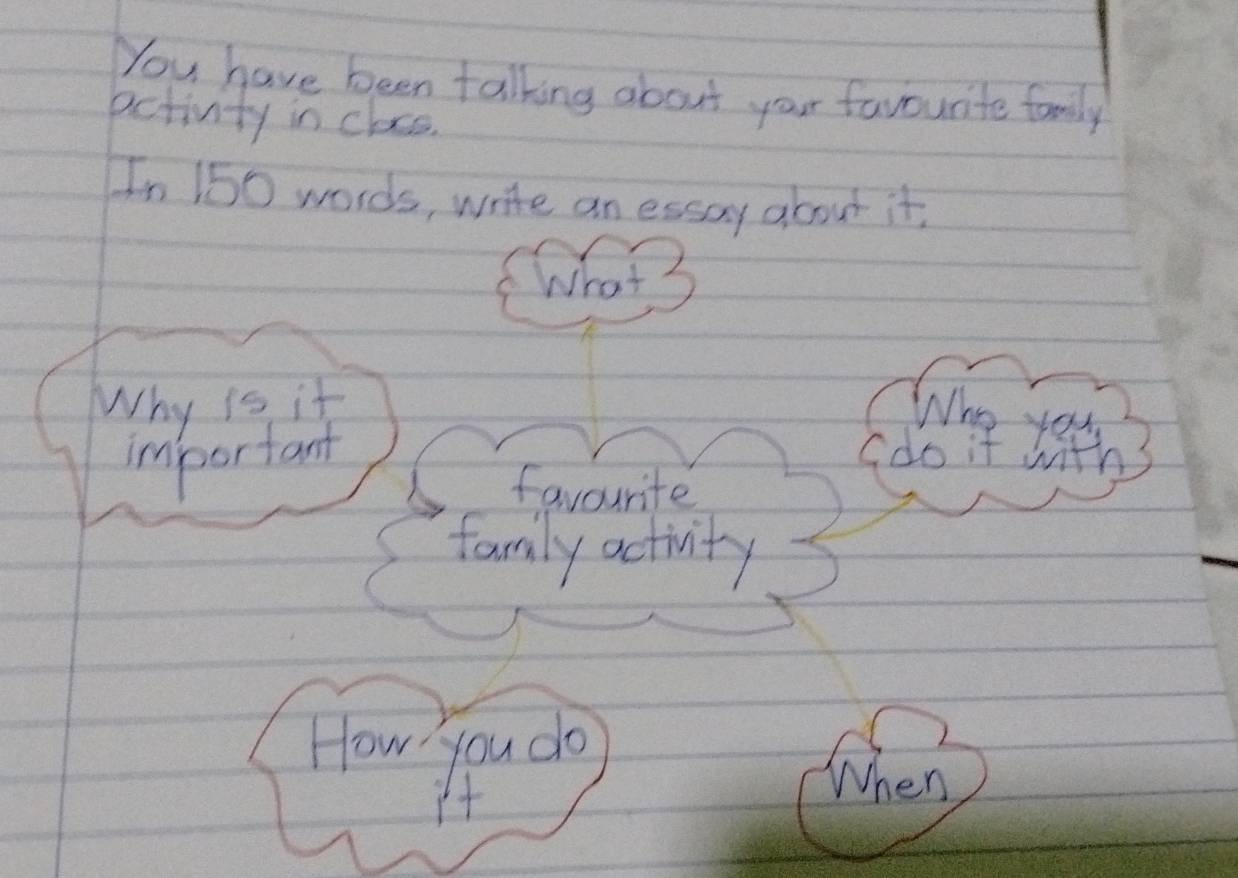 You have been talking about your favourite family
activity in class.
In 150 words, write an essay about it.
What
Why is it
important
Who you
do it with
favourite
family activity
How you do
it
When